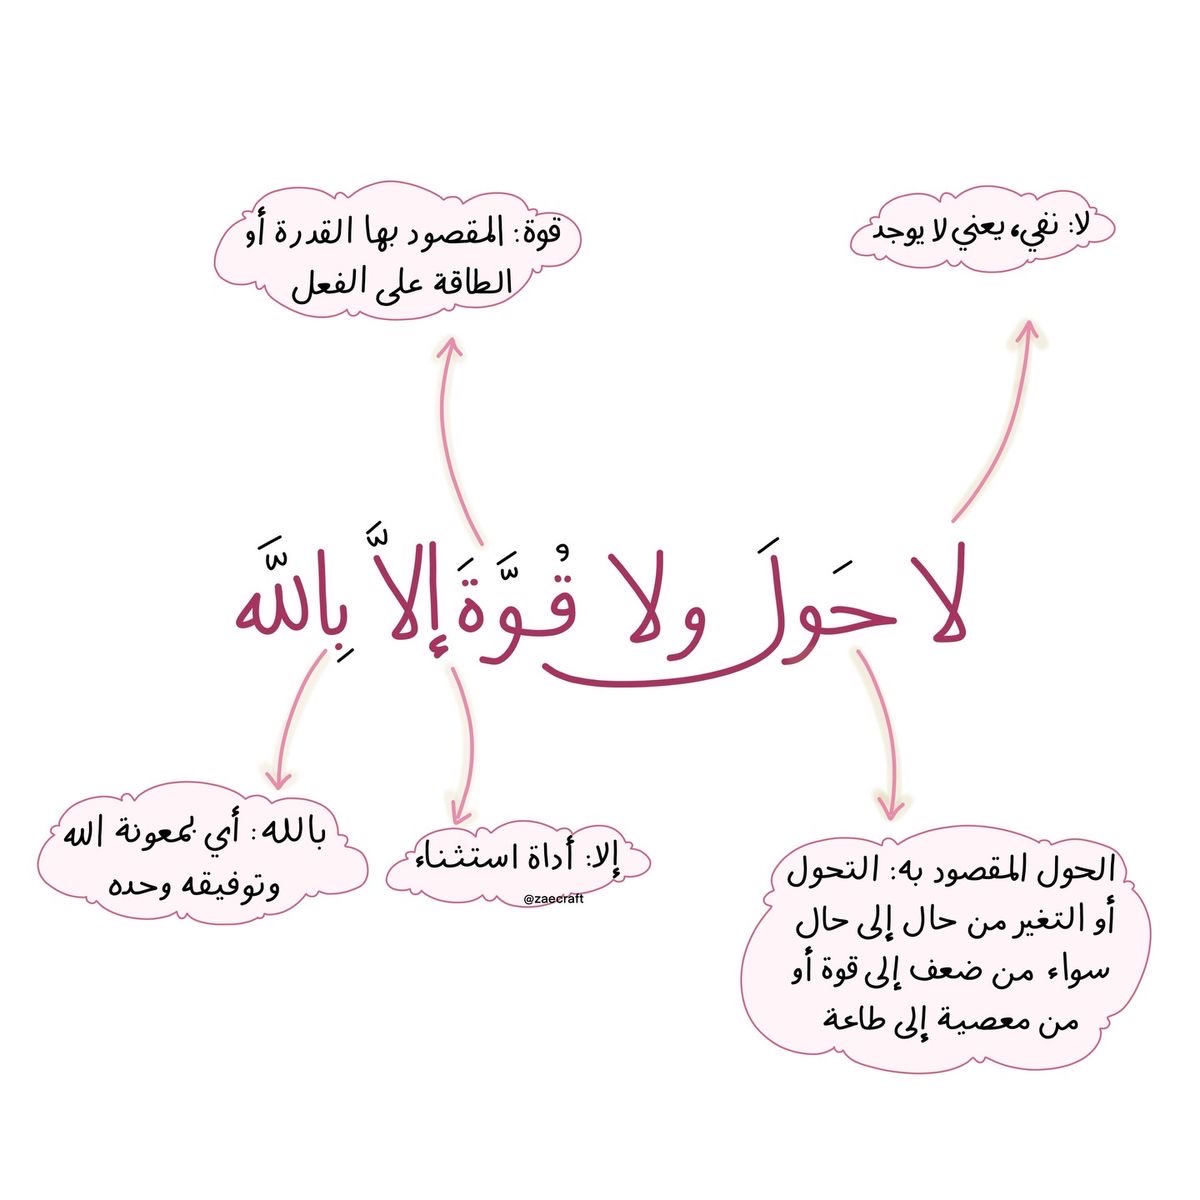 لا: نفي، يعني لا يوجد
قوة: المقصود بها القدرة أو
الطاقة على الفعل
لا حَولَ ولا قُوَّةَ إلاَّ بِاللَّه
الحول المقصود به: التحول
أو التغير من حال إلى حال
سواء من ضعف إلى قوة أو
من معصية إلى طاعة
إلا: أداة استثناء
@zaecraft
بالله: أي بمعونة الله
وتوفيقه وحده